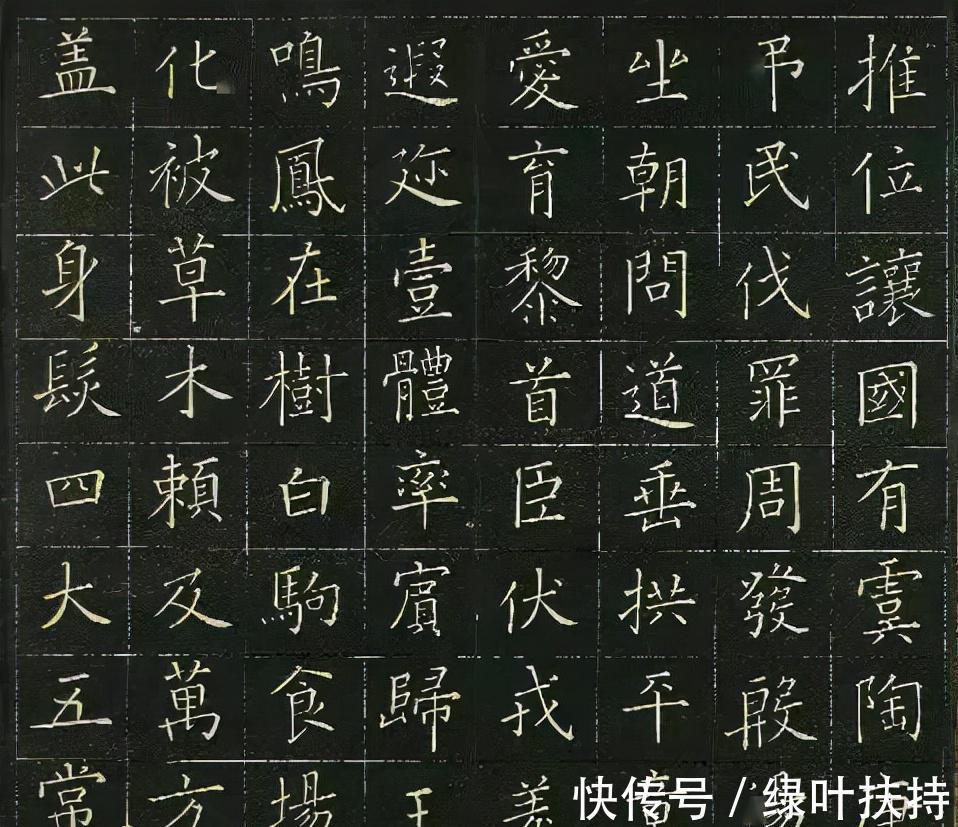 推位讓國有虞陶
吊民伐罪周發殷
坐朝問道垂拱平
愛育黎首臣伏戎
遐迩壹體率賓歸王
鳴鳳在樹白駒食場
化被草木賴及萬方
盖此身髮四大五常
快传号/绿叶扶持